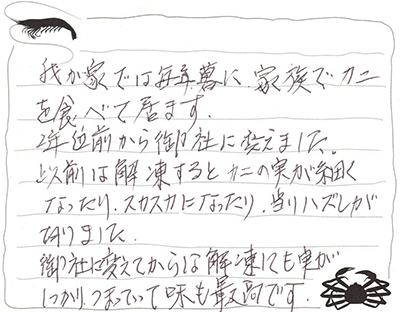 我が家では毎年暮に、家族でカニ
を食べて居ます。
2年位前から御社に変えました。
以前は解凍するとカニの実が細く
なったり、スカスカになったり、当りハズレが
有りました。
御社に変えてからは解凍しても身が
しっかりつまっていて味も最高です。